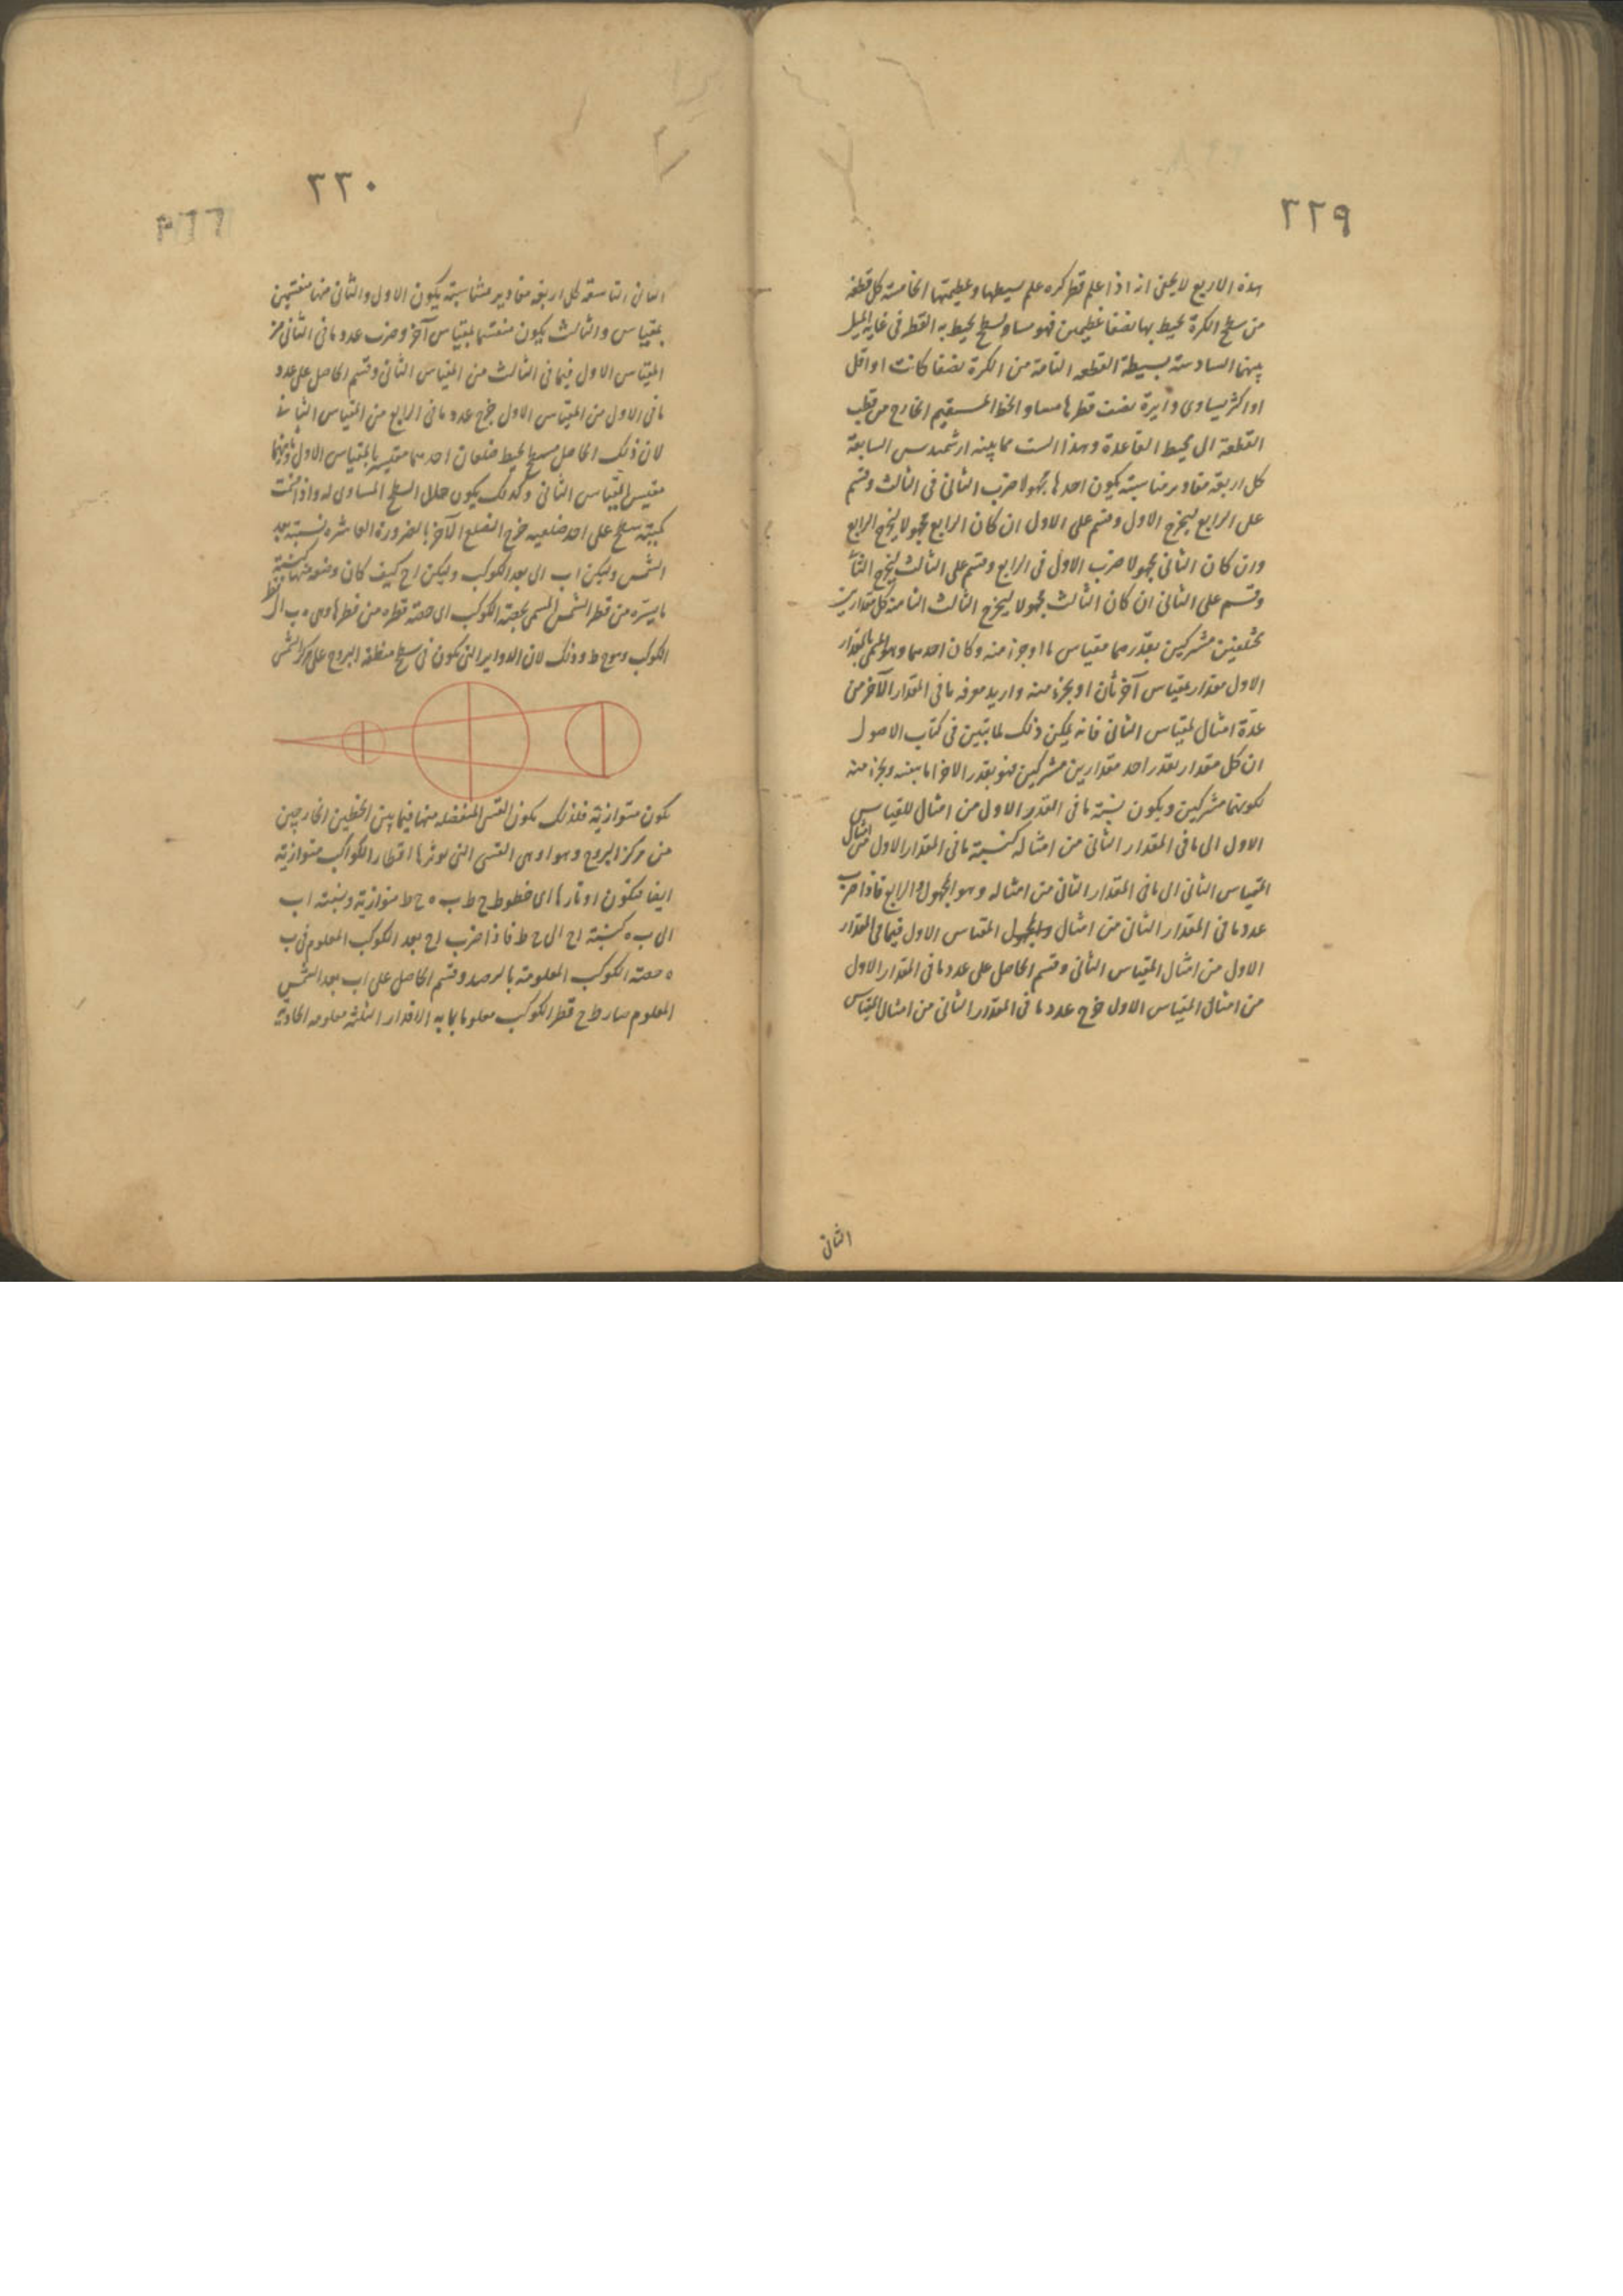 ٢٢٩
هذه الاربع لا يخفى انه اذا علم قطر كره علم بسيطها وعظيمتها الخامسة كل قطعة
من سطح الكرة يحيط بها نصفا عظيمين فهو مساو لسطح يحيط به القطر فى غاية الميل
بينهما السادسة بسيطة القطعه التامة من الكرة نصفا كانت او اقل
او اكثر يساوى دآيرة نصف قطرها مساو الخط المستقيم الخارج من قطب
القطعة الى محيط القاعدة وهذا الست مما بينه ارشميدس السابعة
كل اربعة مقادير متناسبة يكون احدها مجهولا ضرب الثانى فى الثالث وقسم
على الرابع ليخرج الاول وقسم على الاول ان كان الرابع مجهولا ليخرج الرابع
وان كان الثانى مجهولا ضرب الاول فى الرابع وقسم على الثالث ليخرج الثانى
وقسم على الثانى ان كان الثالث مجهولا ليخرج الثالث الثامنة كل مقدارين
مختلفين مشتركين يقدرهما مقياس ما او جزء منه وكان احدهما وهو المسمى بالمقدار
الاول مقدار بمقياس آخر ثان او بجزء منه واريد معرفه ما فى المقدار الآخر من
عدّة امثال المقياس الثانى فانه يمكن ذلك لما تبيّن فى كتاب الاصول
ان كل مقدار يقدر احد مقدارين مشتركين فهو يقدر الاخر اما بعينه وبجزء منه
لكونهما مشتركين ويكون نسبة ما فى القدر الاول من امثال للمقياس
الاول الى ما فى المقدار الثانى من امثاله كنسبة ما فى المقدار الاول من امثال
المقياس الثانى الى ما فى المقدار الثانى من امثاله وهو المجهول الرابع فاذا ضرب
عدد ما فى المقدار الثانى من امثال المقياس الاول فيما فى المقدار
الاول من امثال المقياس الثانى وقسم الحاصل على عدد ما فى المقدار الاول
من امثال المقياس الاول خرج عدد ما فى المقدار الثانى من امثال المقياس
الثانى
٢٢٠
الثانى التاسعة كل اربعة مقادير متناسبة يكون الاول والثانى منها مقتسمين
بمقياس والثالث يكون مقتسما بمقياس آخر وضرب عدد ما فى الثانى من
المقياس الاول فيما فى الثالث من المقياس الثانى وقسم الحاصل على عدد
ما فى الاول من المقياس الاول خرج عدد ما فى الرابع من المقياس الثانى
لان ذلك الحاصل مسطح يحيط ضلعان احدهما مقيس بالمقياس الاول
مقيس المقياس الثانى وكذلك يكون حال السطح المساوى له واذا قسمت
كمية سطح على احد ضلعيه خرج الضلع الآخر بالضرورة العاشره نسبة بعد
الشمس وليكن ا ب الى بعد الكوكب وليكن ا ح كيف كان وضعه منها كنسبة
ما يستره من قطر الشمس المسمى بحصة الكوكب اى حصة قطره من قطرها وهى ه ب الى قطر
الكوكب وهو ح ط وذلك لان الدواير التى يكون فى سطح منطقة البروج على مركز الشمس
يكون متوازية فلذلك يكون القسى المنفصله منها فيما بين الخطين الخارجين
من مركز البروج وهو ا وهى القسى التى يوترها اقطار الكواكب متوازية
ايضا فتكون اوتارها اى خطوط ح ط ب ه ح ط متوازية ونسبة ا ب
الى ب ه كنسبة ا ح الى ح ط فاذا ضرب ا ح بعد الكوكب المعلوم فى ب
ه حصة الكوكب المعلومة بالرصد وقسم الحاصل على ا ب بعد الشمس
المعلوم صار ط ح قطر الكوكب معلوما بما به الاقدار الثلثة معلومه الحادية